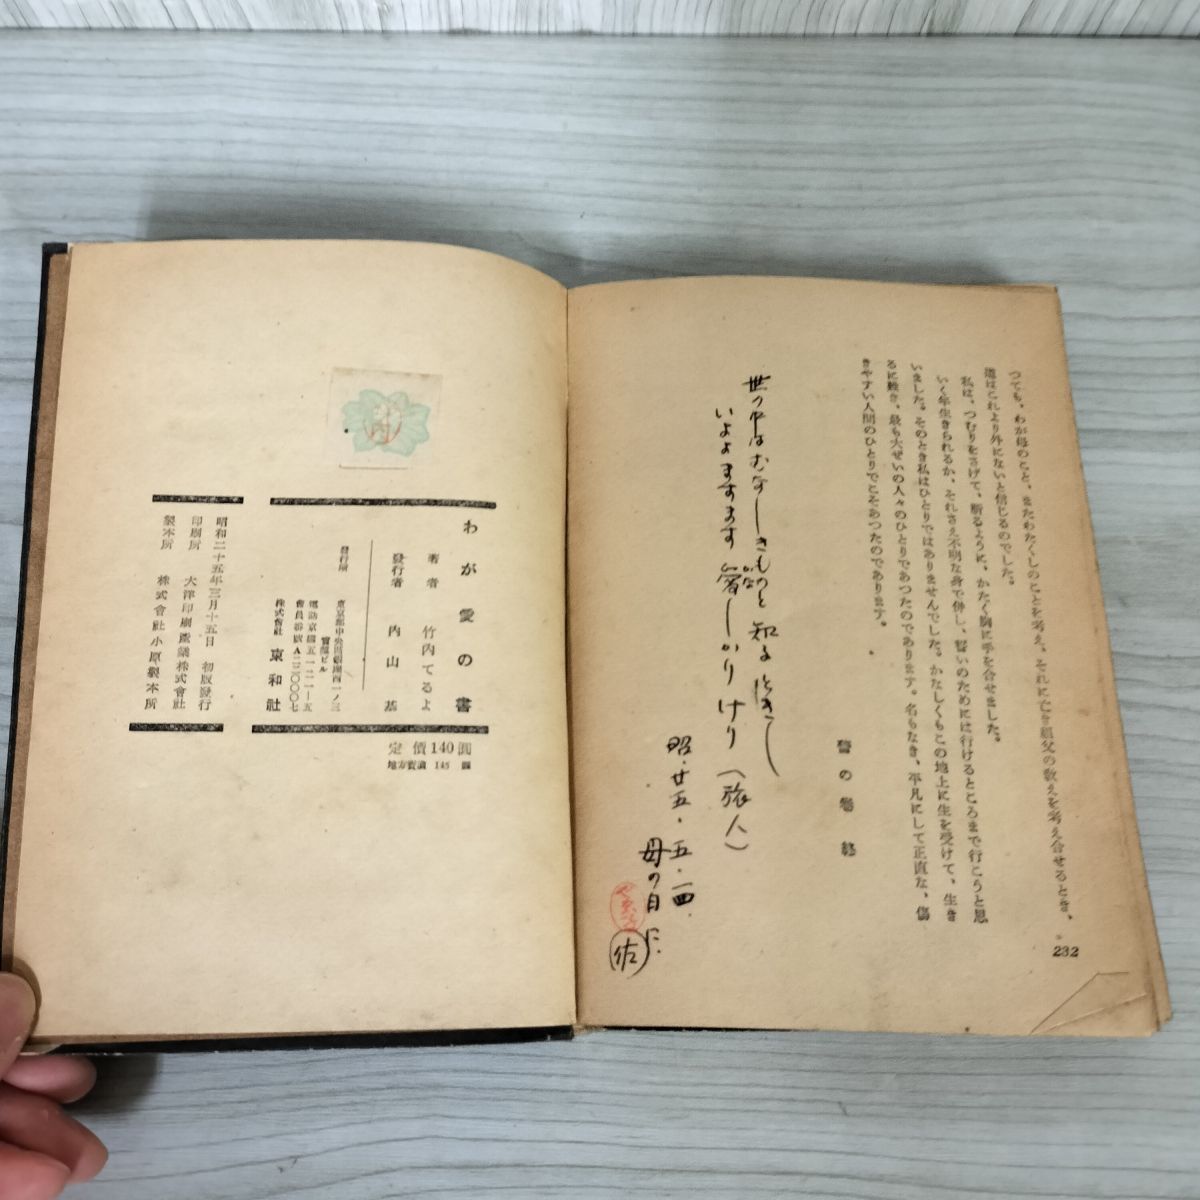 つても、わが母のこと、またわたくしのことを考え、それに亡き祖父の敎えを考え合せるとき、
道はこれより外にないと信じるのでした。
私は、つむりをさげて、祈るように、かたく胸に手を合せました。
いく年生きられるか、それさえ不明な身で併し、誓いのためには行けるところまで行こうと思
いました。そのとき私はひとりではありませんでした。かなしくもこの地上に生を受けて、生き
るに難き、最も大ぜいの人々のひとりであつたのであります。名もなき、平凡にして正直な、傷
きやすい人間のひとりでこそあつたのであります。
誓の卷 終
232
世の中はむなしきものと知るときし
いよよますます 悲しかりけり (旅人)
昭.廿五.五.一四.
母の日に
佐
竹内
わが愛の書
著者 竹内てるよ
發行者 內山基
發行所
東京都中央區銀座西一ノ三
實業ビル
電話京橋五一二一—五
會員番號A二二〇〇〇七
株式會社 東和社
昭和二十五年三月十五日 初版發行
印刷所 大洋印刷產業株式會社
製本所 株式會社小原製本所
定價140圓
地方賣價 145圓